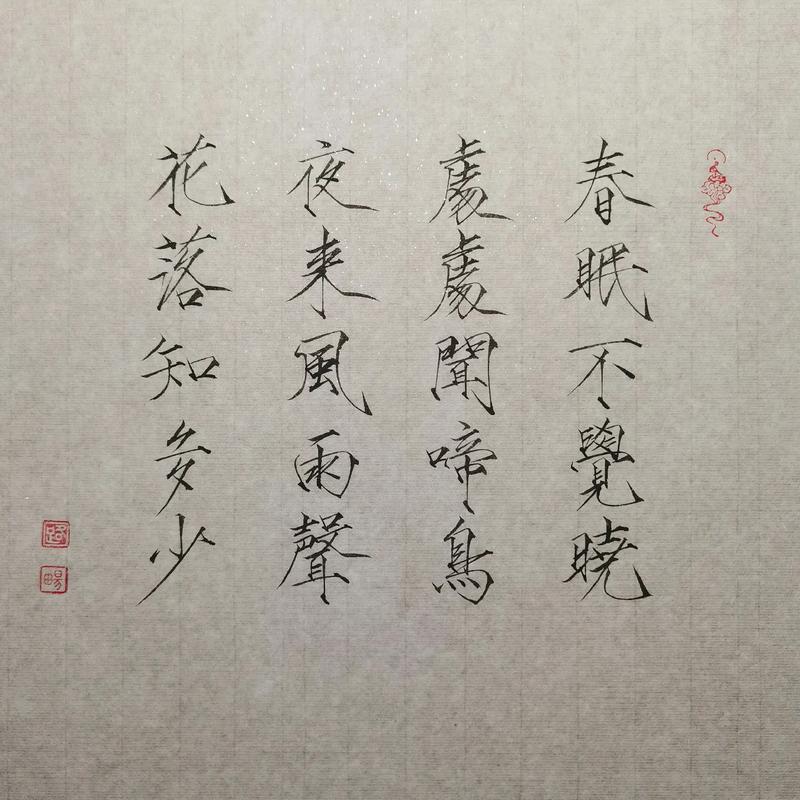 春眠不覺曉
處處聞啼鳥
夜来風雨聲
花落知多少
路
暢